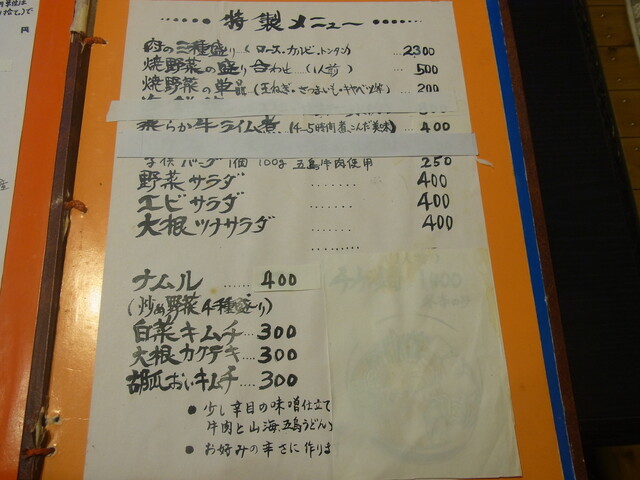 特製メニュー
肉の三種盛り(ロース・カルビ・トンタン) … 2300
焼野菜の盛り合わせ(1人前) … 500
焼野菜の単品(玉ねぎ・さつまいも・キャベツ等) … 200
柔らか牛スライム煮(4~5時間煮こんだ美味) … 400
1個 100g 五島牛肉使用 250
野菜サラダ ....... 400
エビサラダ ....... 400
大根ツナサラダ ....... 400
ナムル ...... 400
(炒め野菜4種盛り)
白菜キムチ … 300
大根カクテキ … 300
胡瓜おいキムチ … 300
● 少し辛目の味噌仕立て
牛肉と山海五島うどん)
● お好みの辛さに作りま
円